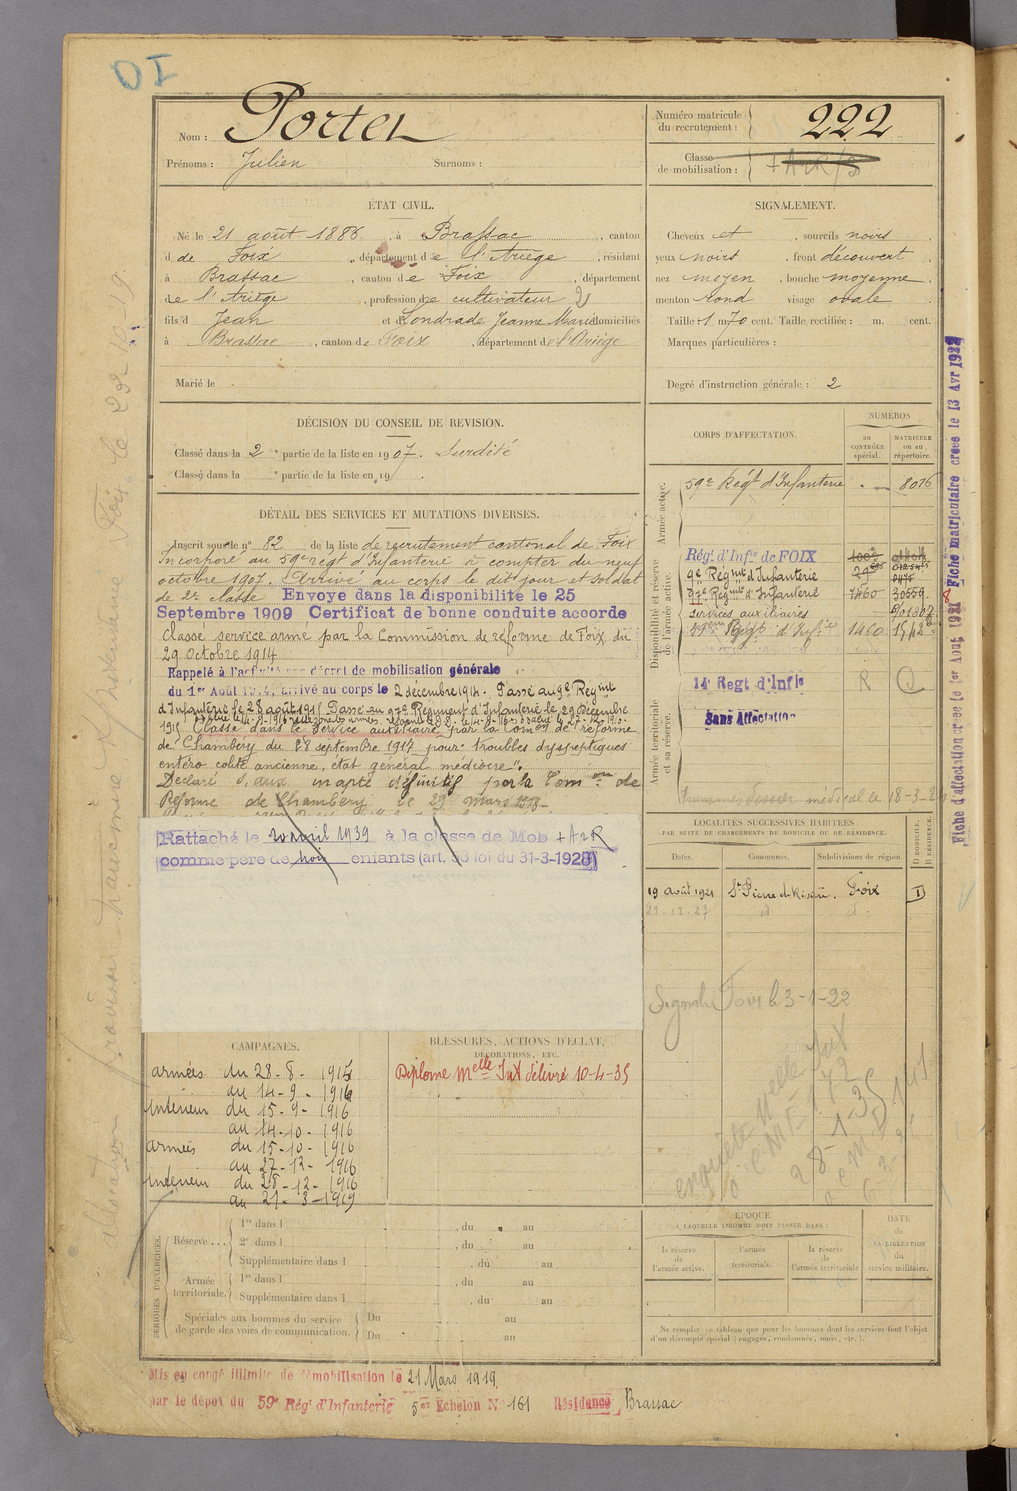 OI
Nom : Portet
Prénoms : Julien Surnoms :
Numéro matricule du recrutement : 222
Classe de mobilisation :
ÉTAT CIVIL.
Né le 21 août 1886, à Brassac, canton
d de Foix, département de l'Ariège, résidant
à Brassac, canton de Foix, département
de l'Ariège, profession de cultivateur
fils d Jean et Londrade Jeanne Marie domiciliés
à Brassac, canton de Foix, département de l'Ariège
Marié le
SIGNALEMENT.
Cheveux et, sourcils noirs,
yeux noirs, front découvert,
nez moyen, bouche moyenne,
menton rond visage ovale
Taille : 1 m 70 cent. Taille rectifiée : m. cent.
Marques particulières :
Degré d'instruction générale : 2
DÉCISION DU CONSEIL DE REVISION.
Classé dans la 2e partie de la liste en 1907. Surdité
Classé dans la e partie de la liste en 19 .
DÉTAIL DES SERVICES ET MUTATIONS DIVERSES.
Inscrit sous le n° 82 de la liste de recrutement cantonal de Foix
Incorporé au 59e régt d'Infanterie à compter du neuf
octobre 1907. Arrivé au corps le dit jour et soldat
de 2e classe Envoye dans la disponibilité le 25
Septembre 1909 Certificat de bonne conduite accorde
Classé service armé par la Commission de réforme de Foix du
29 Octobre 1914
Rappelé à l'activité décret de mobilisation générale
du 1er Août 1914, arrivé au corps le 2 décembre 1914. Passé au 9e Régimt
d'Infanterie le 28 août 1915 Passé au 97e Régiment d'Infanterie le 29 Décembre
1915 Classé dans le service auxiliaire par la Comon de réforme
de Chambéry du 28 septembre 1917 pour "troubles dyspeptiques
entéro colite ancienne, état général médiocre".
Déclaré s. aux inapte définitif par la Comon de
Réforme de Chambéry le 29 mars 1918
Rattaché le 20 avril 1939 à la classe de Mob
comme père de trois enfants (art. 58 loi du 31-3-1928)
CORPS D'AFFECTATION.
NUMÉROS
au CONTRÔLE spécial.
MATRICULE ou au répertoire.
Armée active.
59e Régt d'Infanterie 8016
Disponibilité et réserve de l'armée active.
Régt d'Infie de FOIX
9e Régimt d'Infanterie
97e Régimt d'Infanterie 1460 30559
Services auxiliaires
Régt d'Infie 1460
Armée territoriale et sa réserve.
14e Regt d'Infie
Sans Affectation
dossier médical le 18-3-2
LOCALITÉS SUCCESSIVES HABITÉES
PAR SUITE DE CHANGEMENTS DE DOMICILE OU DE RÉSIDENCE.
Dates. Communes. Subdivisions de région. D DOMICILE. R RÉSIDENCE.
19 août 1921 St Pierre de Rivière. Foix D
Signalé Foix le 3-1-22
CAMPAGNES.
armées du 28-8-1915
au 14-9-1916
Intérieur du 15-9-1916
au 14-10-1916
armées du 15-10-1916
au 27-12-1916
Intérieur du 28-12-1916
au 21-3-1919
BLESSURES, ACTIONS D'ÉCLAT,
DÉCORATIONS, ETC.
Diplome Melle Int délivré 10-4-35
PÉRIODES D'EXERCICES.
Réserve....
1re dans l , du au
2e dans l , du au
Supplémentaire dans l , du au
Armée territoriale.
1re dans l , du au
Supplémentaire dans l , du au
Spéciales aux hommes du service de garde des voies de communication.
Du au
Du au
ÉPOQUE
À LAQUELLE L'HOMME DOIT PASSER DANS :
la réserve de l'armée active.
l'armée territoriale.
la réserve de l'armée territoriale
DATE DE LA LIBÉRATION du service militaire.
Ne remplir ce tableau que pour les hommes dont les services font l'objet
d'un décompte spécial (engagés, condamnés, omis, etc.).
Mis en congé illimité de démobilisation le 21 Mars 1919.
par le dépôt du 59e Régt d'Infanterie 5e Echelon N° 161 Résidence Brassac
Fiche d'affectation créée le 1er Août 1921
Fiche matriculaire créée le 13 Avr 1922